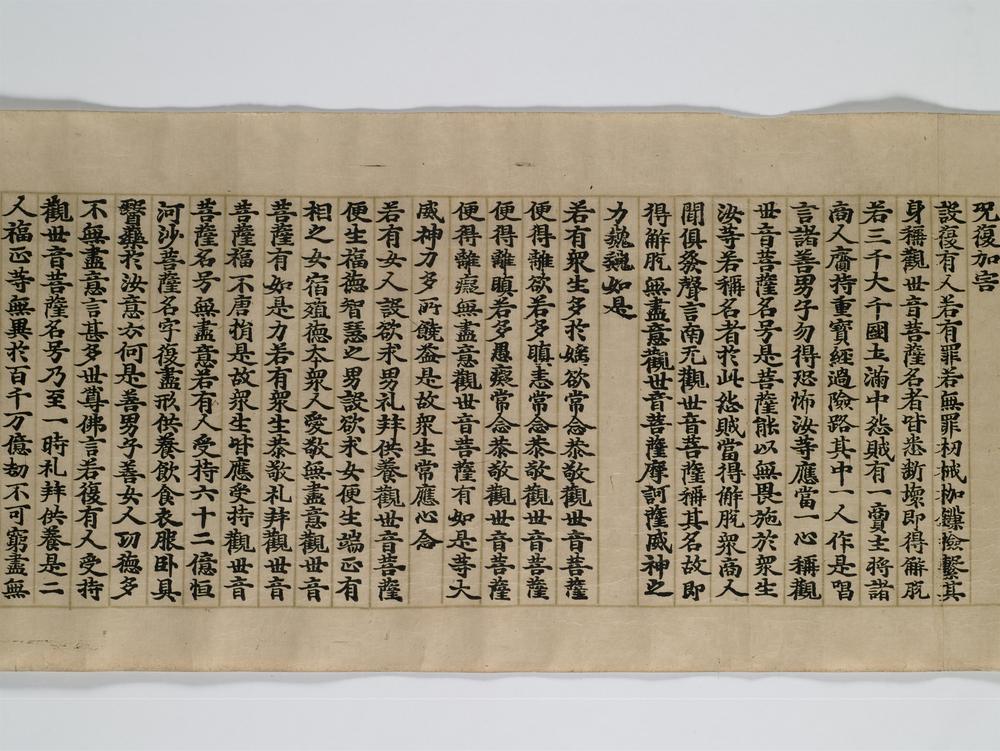 咒復加害
設復有人若有罪若無罪杻械枷鏁撿繫其
身稱觀世音菩薩名者皆悉斷壞即得解脫
若三千大千國土滿中怨賊有一商主將諸
商人齎持重寶經過險路其中一人作是唱
言諸善男子勿得恐怖汝等應當一心稱觀
世音菩薩名号是菩薩能以無畏施於衆生
汝等若稱名者於此怨賊當得解脫衆商人
聞俱發聲言南无觀世音菩薩稱其名故即
得解脫無盡意觀世音菩薩摩訶薩威神之
力巍巍如是
若有衆生多於婬欲常念恭敬觀世音菩薩
便得離欲若多瞋恚常念恭敬觀世音菩薩
便得離瞋若多愚癡常念恭敬觀世音菩薩
便得離癡無盡意觀世音菩薩有如是等大
威神力多所饒益是故衆生常應心念
若有女人設欲求男礼拜供養觀世音菩薩
便生福德智慧之男設欲求女便生端正有
相之女宿殖德本衆人愛敬無盡意觀世音
菩薩有如是力若有衆生恭敬礼拜觀世音
菩薩福不唐捐是故衆生皆應受持觀世音
菩薩名号無盡意若有人受持六十二億恒
河沙菩薩名字復盡形供養飲食衣服卧具
醫藥於汝意云何是善男子善女人功德多
不無盡意言甚多世尊佛言若復有人受持
觀世音菩薩名号乃至一時礼拜供養是二
人福正等無異於百千万億劫不可窮盡無